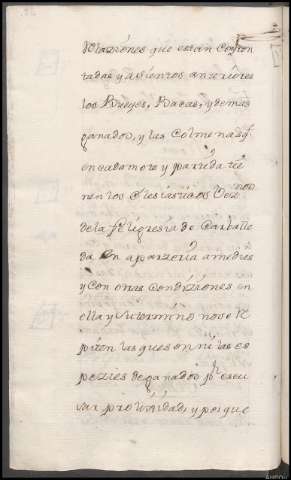 Relaziones que estan Confron
tadas y asientos anteriores
los Bueyes, Bacas, y demas
ganados, y las Colmenas q.
en cada monte y partida tie
nen los Eclesiasticos Vez.nos
de la feligresia de Carballe
da en aparzeria a medias
y con otras Condiziones en
ella y su termino no se Re
piten las que son ni las es
pezies de ganados p.r escu
sar prolixidad, y porque